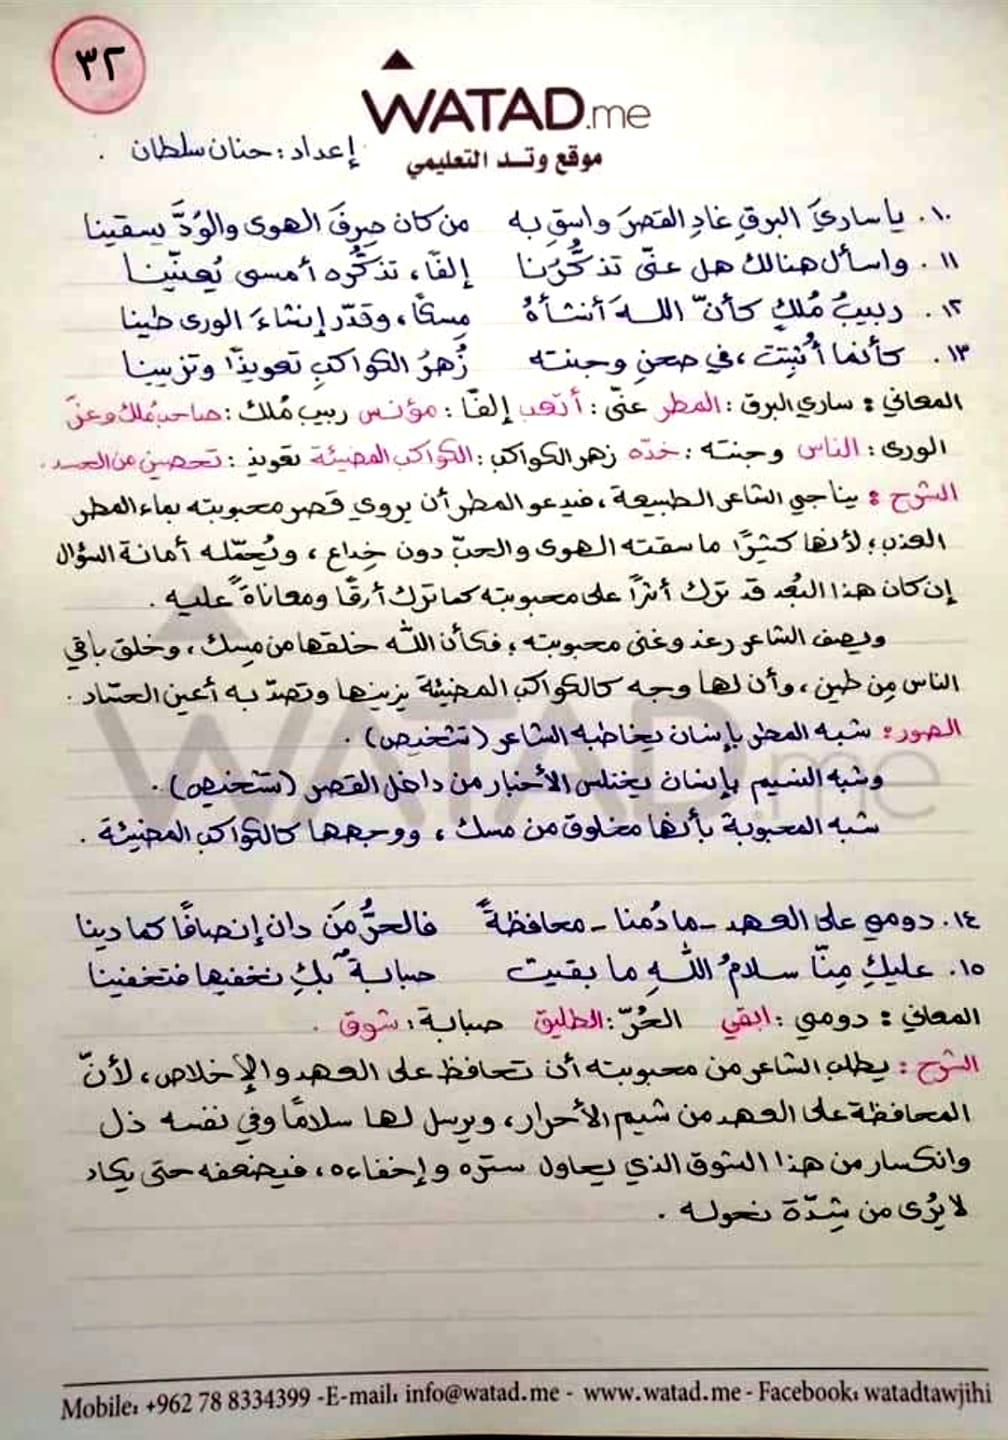 ٣٢
WATAD.me
موقع وتد التعليمي
إعداد : حنان سلطان .
١٠. يا ساريَ البرقِ غادِ القصرَ واسقِ به من كان صِرفَ الهوى والوُدَّ يسقينا
١١. واسأل هنالك هل عنّى تذكُّرُنا إلفًا، تذكُّره أمسى يُعنّينا
١٢. ربيبُ مُلكٍ كأنّ اللهَ أنشأهُ مِسكًا، وقدّر إنشاءَ الورى طينا
١٣. كأنما أُثبتت، في صحنِ وجنته زُهرُ الكواكبِ تعويذًا وتزيينا
المعاني : ساري البرق : المطر عنّى : أتعب إلفًا : مؤنس ربيب مُلك : صاحب مُلك وعزّ
الورى : الناس وجنته : خدّه زهر الكواكب : الكواكب المضيئة تعويذ : تحصين من الحسد .
الشرح : يناجي الشاعر الطبيعة ، فيدعو المطر أن يروي قصر محبوبته بماء المطر
العذب ؛ لأنها كثيرًا ما سقته الهوى والحبّ دون خداع ، ويُحمّله أمانة السؤال
إن كان هذا البُعد قد ترك أثرًا على محبوبته كما ترك أرقًا ومعاناةً عليه .
ويصف الشاعر رغد وغنى محبوبته ؛ فكأن الله خلقها من مِسك ، وخلق باقي
الناس مِن طين ، وأن لها وجه كالكواكب المضيئة يزينها وتصدّ به أعين الحسّاد .
الصور : شبه المطر بإنسان يخاطبه الشاعر (تشخيص) .
وشبه النسيم بإنسان يختلس الأخبار من داخل القصر (تشخيص) .
شبه المحبوبة بأنها مخلوق من مسك ، ووجهها كالكواكب المضيئة .
WATAD.me
١٤. دومي على العهد - ما دُمنا - محافظةً فالحرُّ مَن دان إنصافًا كما دينا
١٥. عليكِ مِنّا سلامُ اللهِ ما بقيت صبابةٌ بكِ نخفيها فتخفينا
المعاني : دومي : ابقي الحُرّ : الطليق صبابة : شوق .
الشرح : يطلب الشاعر من محبوبته أن تحافظ على العهد والإخلاص ، لأنّ
المحافظة على العهد من شيم الأحرار ، ويرسل لها سلامًا وفي نفسه ذل
وانكسار من هذا الشوق الذي يحاول ستره وإخفاءه ، فيضعفه حتى يكاد
لا يُرى من شِدّة نحوله .
Mobile: +962 78 8334399 -E-mail: info@watad.me - www.watad.me - Facebook: watadtawjihi